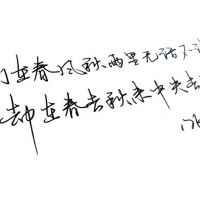 在春风秋雨里无话不
却在春去秋来中失去